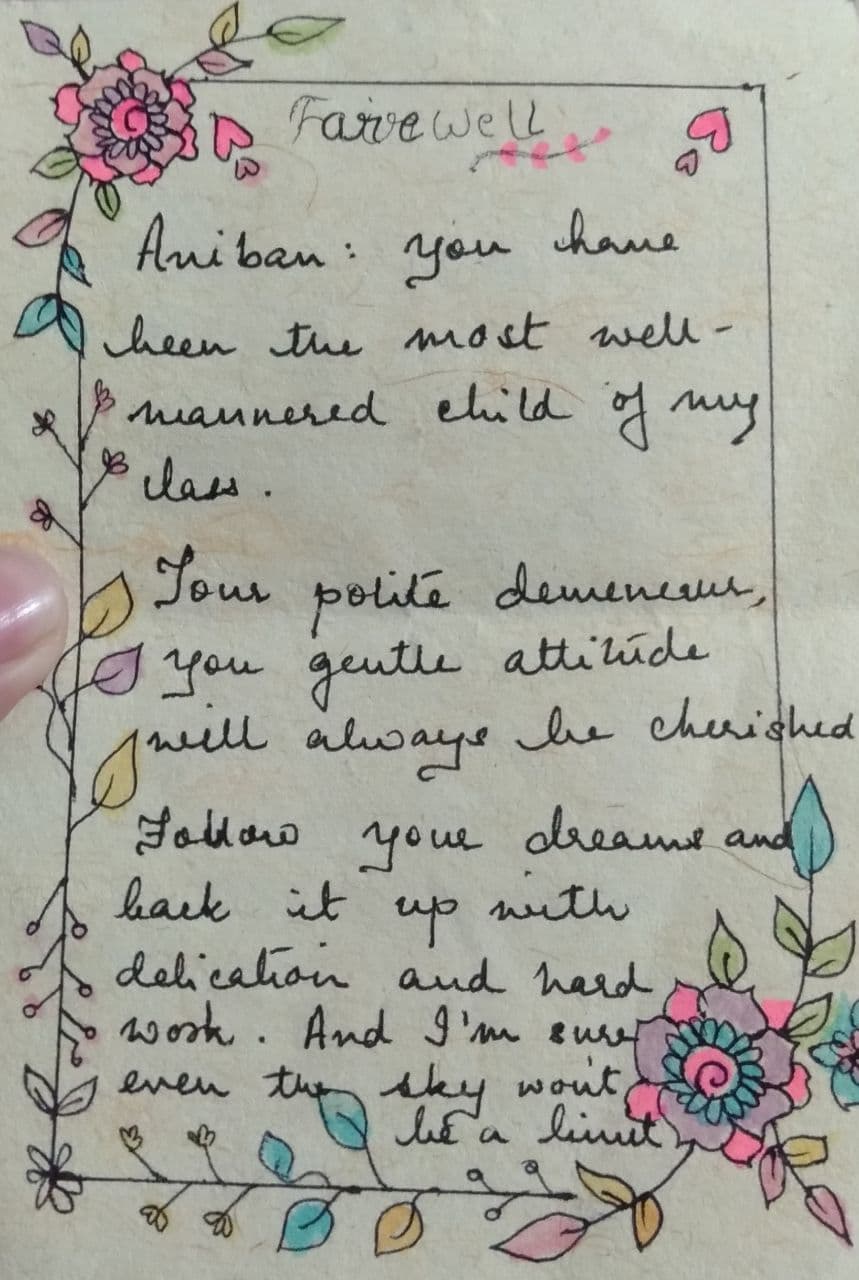 Farewell
Aniban: you have
been the most well-
mannered child of my
class.
Your polite demeneour,
you gentle attitude
will always be cherished
Follow your dreams and
back it up with
delication and hard
work. And I'm sure
even the sky won't
be a limit